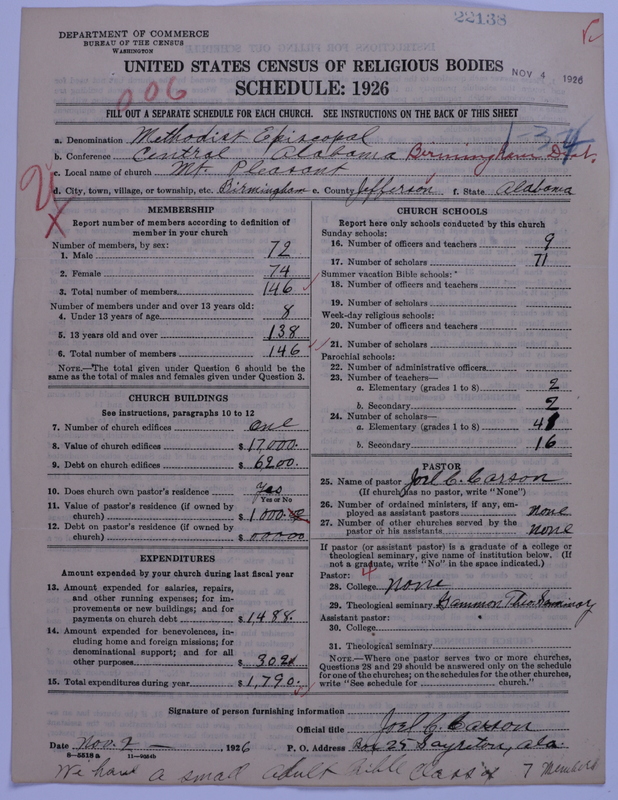 22138
DEPARTMENT OF COMMERCE
BUREAU OF THE CENSUS
WASHINGTON
UNITED STATES CENSUS OF RELIGIOUS BODIES
NOV 4 1926
SCHEDULE: 1926
006
FILL OUT A SEPARATE SCHEDULE FOR EACH CHURCH. SEE INSTRUCTIONS ON THE BACK OF THIS SHEET
1-34
a. Denomination Methodist Episcopal
b. Conference Central Alabama Birmingham Dist.
c. Local name of church Mt. Pleasant
d. City, town, village, or township, etc. Birmingham e. County Jefferson f. State Alabama
2
X
MEMBERSHIP
Report number of members according to definition of
member in your church
Number of members, by sex:
1. Male 72
2. Female 74
3. Total number of members 146
Number of members under and over 13 years old:
4. Under 13 years of age 8
5. 13 years old and over 138
6. Total number of members 146
NOTE.—The total given under Question 6 should be
same as the total of males and females given under Question 3.
CHURCH BUILDINGS
See instructions, paragraphs 10 to 12
7. Number of church edifices one
8. Value of church edifices $ 17,000.
9. Debt on church edifices $ 6200.
10. Does church own pastor's residence Yes
Yes or No
11. Value of pastor's residence (if owned by
church) $ 1000.
12. Debt on pastor's residence (if owned by
church) $ 00000
EXPENDITURES
Amount expended by your church during last fiscal year
13. Amount expended for salaries, repairs,
and other running expenses; for im-
provements or new buildings; and for
payments on church debt $ 1,488.
14. Amount expended for benevolences, in-
cluding home and foreign missions; for
denominational support; and for all
other purposes $ 302
15. Total expenditures during year $ 1,790.
CHURCH SCHOOLS
Report here only schools conducted by this church
Sunday schools:
16. Number of officers and teachers 9
17. Number of scholars 71
Summer vacation Bible schools:
18. Number of officers and teachers
19. Number of scholars
Week-day religious schools:
20. Number of officers and teachers
21. Number of scholars
Parochial schools:
22. Number of administrative officers
23. Number of teachers—
a. Elementary (grades 1 to 8) 2
b. Secondary 2
24. Number of scholars—
a. Elementary (grades 1 to 8)
b. Secondary 16
PASTOR
25. Name of pastor Joel C. Carson
(If church has no pastor, write "None")
26. Number of ordained ministers, if any, em-
ployed as assistant pastors none
27. Number of other churches served by the
pastor or his assistants none
If pastor (or assistant pastor) is a graduate of a college or
theological seminary, give name of institution below. (If
not a graduate, write "No" in the space indicated.)
Pastor: 4
28. College None
29. Theological seminary Gammon Theo Seminary
Assistant pastor:
30. College
31. Theological seminary
NOTE.—Where one pastor serves two or more churches,
Questions 28 and 29 should be answered only on the schedule
for one of the churches; on the schedules for the other churches,
write "See schedule for church."
Signature of person furnishing information
Official title Joel C. Carson
Date Nov. 2, 1926 P. O. Address Box 25 Sayreton, Ala.
We have a small adult Bible Class of 7 Members